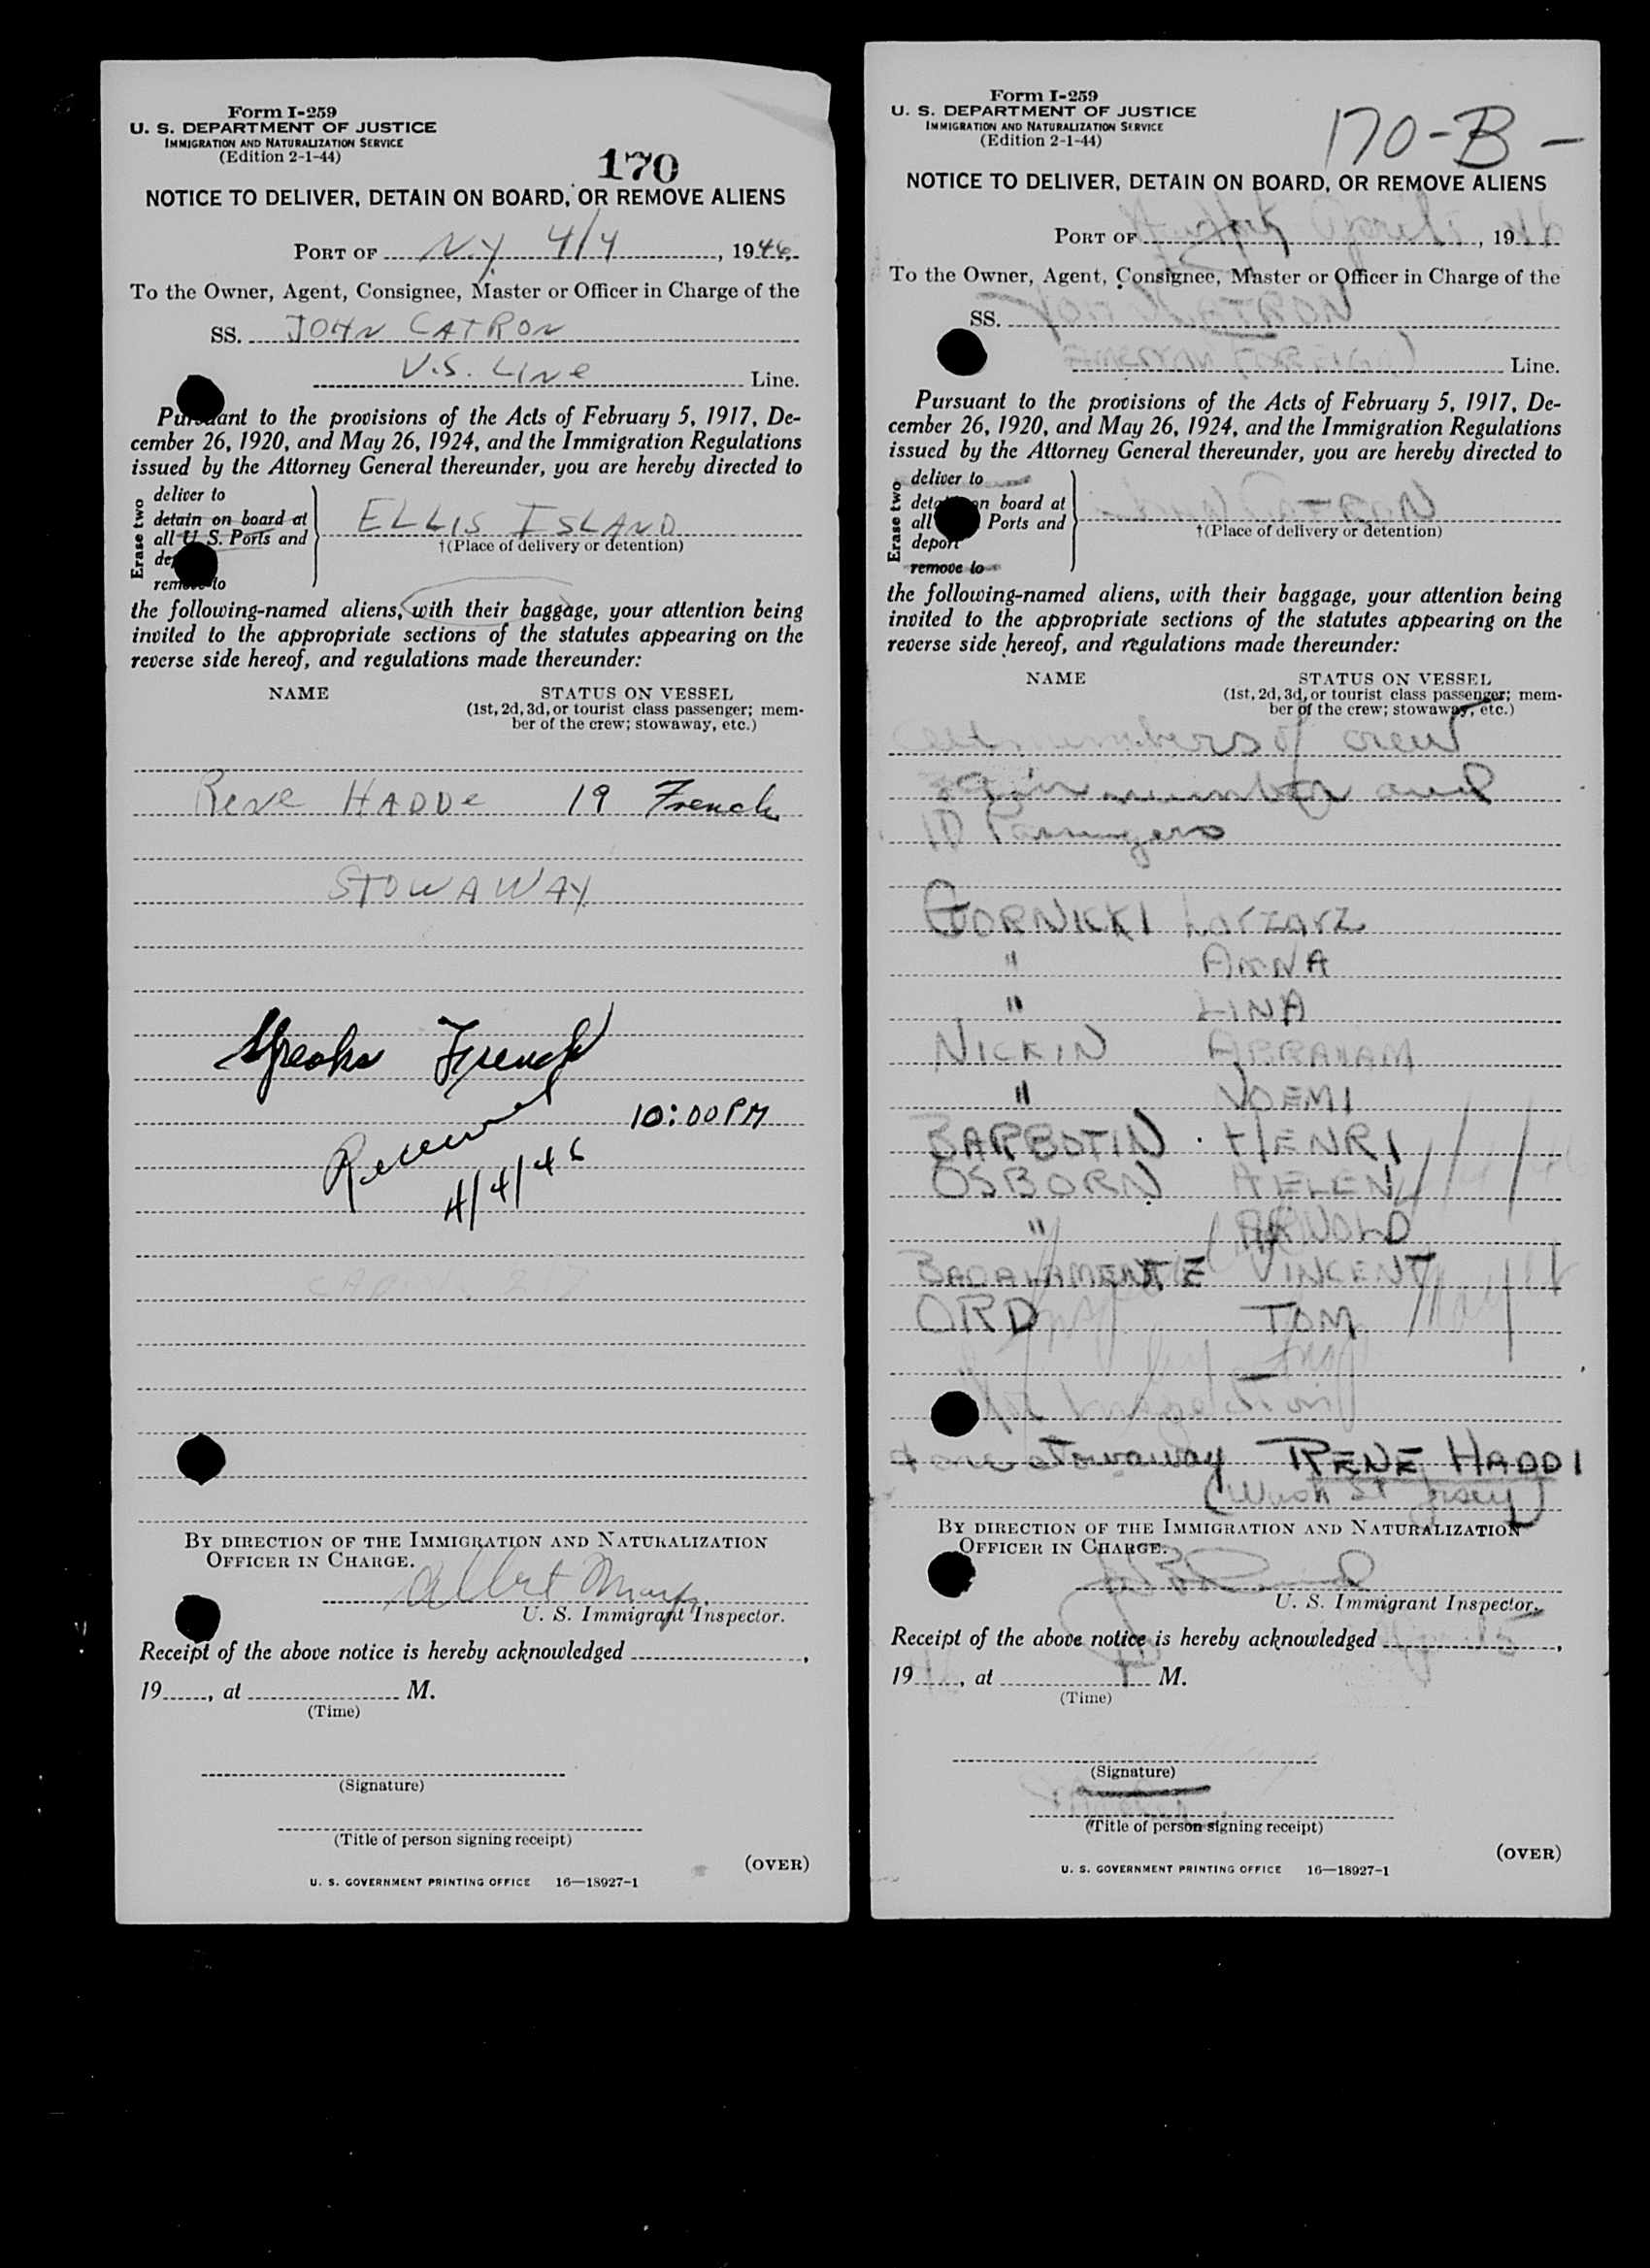 Form I-259
U. S. DEPARTMENT OF JUSTICE
IMMIGRATION AND NATURALIZATION SERVICE
(Edition 2-1-44)
170
NOTICE TO DELIVER, DETAIN ON BOARD, OR REMOVE ALIENS
PORT OF N.Y. 4/4, 1946
To the Owner, Agent, Consignee, Master or Officer in Charge of the
SS. JOHN CATRON
U.S. LINE Line.
Pursuant to the provisions of the Acts of February 5, 1917, De-
cember 26, 1920, and May 26, 1924, and the Immigration Regulations
issued by the Attorney General thereunder, you are hereby directed to
Erase two
deliver to
detain on board at
all U. S. Ports and
remove to
ELLIS ISLAND
†(Place of delivery or detention)
the following-named aliens, with their baggage, your attention being
invited to the appropriate sections of the statutes appearing on the
reverse side hereof, and regulations made thereunder:
NAME STATUS ON VESSEL
(1st, 2d, 3d, or tourist class passenger; mem-
ber of the crew; stowaway, etc.)
Rene HADDe 19 French
STOWAWAY
Speaks French
10:00 PM
Received
4/4/46
BY DIRECTION OF THE IMMIGRATION AND NATURALIZATION
OFFICER IN CHARGE.
Albert
U. S. Immigrant Inspector.
Receipt of the above notice is hereby acknowledged ,
19 , at M.
(Time)
(Signature)
(Title of person signing receipt)
(OVER)
U. S. GOVERNMENT PRINTING OFFICE 16—18927-1
Form I-259
U. S. DEPARTMENT OF JUSTICE
IMMIGRATION AND NATURALIZATION SERVICE
(Edition 2-1-44)
170-B-
NOTICE TO DELIVER, DETAIN ON BOARD, OR REMOVE ALIENS
PORT OF April , 19
To the Owner, Agent, Consignee, Master or Officer in Charge of the
SS.
Line.
Pursuant to the provisions of the Acts of February 5, 1917, De-
cember 26, 1920, and May 26, 1924, and the Immigration Regulations
issued by the Attorney General thereunder, you are hereby directed to
Erase two
deliver to
on board at
all Ports and
deport
remove to
†(Place of delivery or detention)
the following-named aliens, with their baggage, your attention being
invited to the appropriate sections of the statutes appearing on the
reverse side hereof, and regulations made thereunder:
NAME STATUS ON VESSEL
(1st, 2d, 3d, or tourist class passenger; mem-
ber of the crew; stowaway, etc.)
all members of crew
39 in number and
10 Passengers
GORNIKKI
" ANNA
" LINA
NICKIN ABRAHAM
" NOEMI
BARBOTIN HENRI
OSBORN HELEN
" ARNOLD
BADALAMENTE VINCENT
ORD TOM
+ one stowaway RENE HADDI
BY DIRECTION OF THE IMMIGRATION AND NATURALIZATION
OFFICER IN CHARGE.
U. S. Immigrant Inspector.
Receipt of the above notice is hereby acknowledged ,
19 , at M.
(Time)
(Signature)
(Title of person signing receipt)
(OVER)
U. S. GOVERNMENT PRINTING OFFICE 16—18927-1